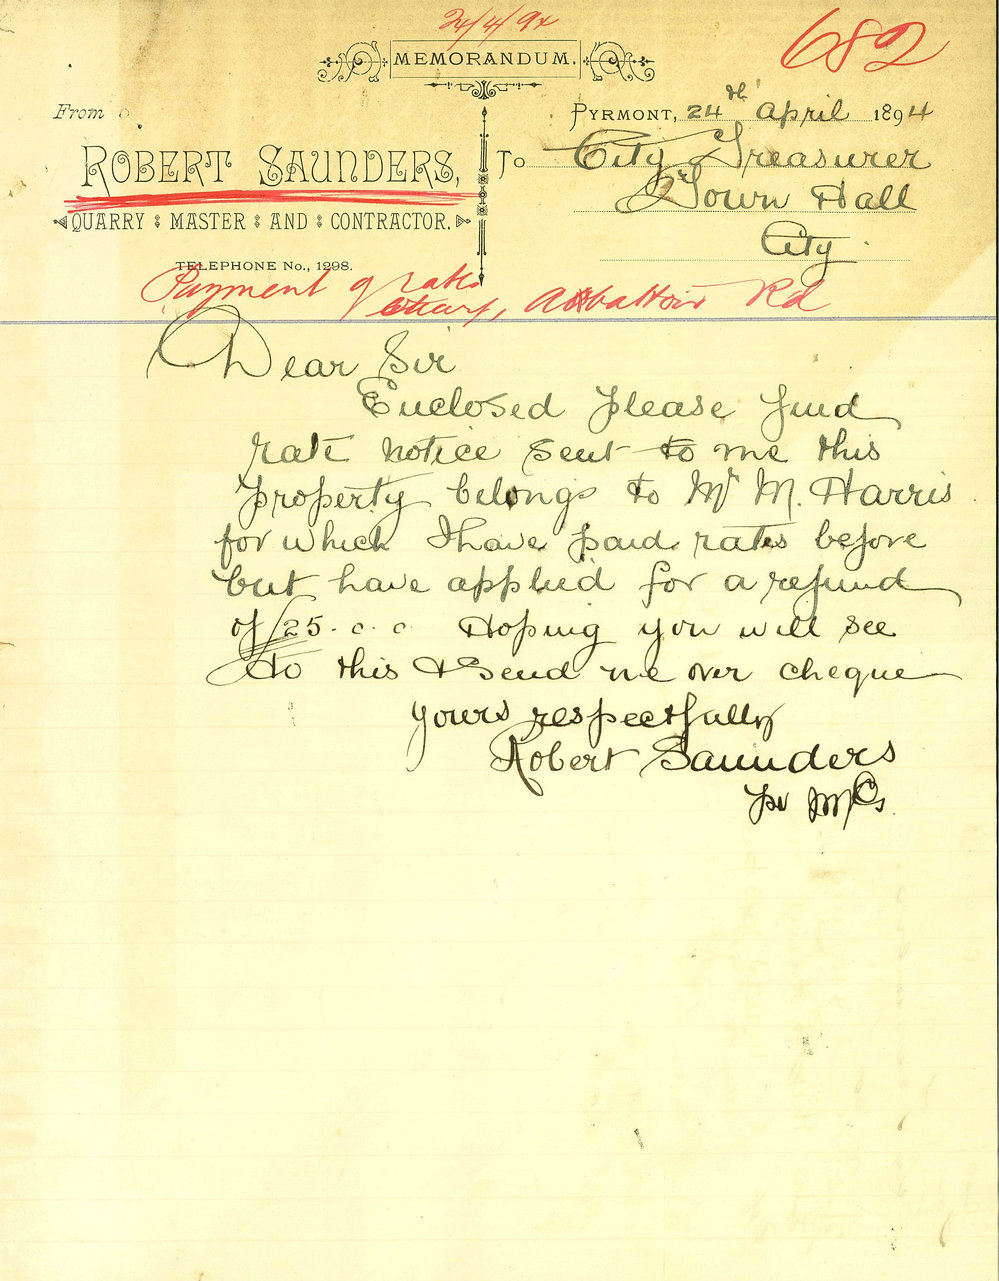 24/4/94
682
MEMORANDUM.
From
PYRMONT, 24th April 1894
ROBERT SAUNDERS,
To City Treasurer
Town Hall
City
QUARRY MASTER AND CONTRACTOR.
TELEPHONE No., 1298.
Payment of rates
Wharf, Abbattoir Rd
Dear Sir
Enclosed please find
rate notice sent to me this
property belongs to Mr M. Harris
for which I have paid rates before
but have applied for a refund
of £25. o. o. Hoping you will see
to this & send me over cheque
yours respectfully
Robert Saunders
pr